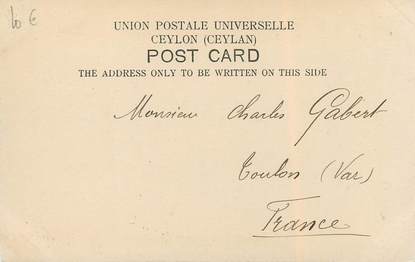 10 €
UNION POSTALE UNIVERSELLE
CEYLON (CEYLAN)
POST CARD
THE ADDRESS ONLY TO BE WRITTEN ON THIS SIDE
Monsieur Charles Gabert
Toulon (Var)
France